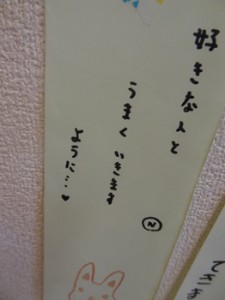 好きな人と
うまくいきます
ように…♥
N
てきま